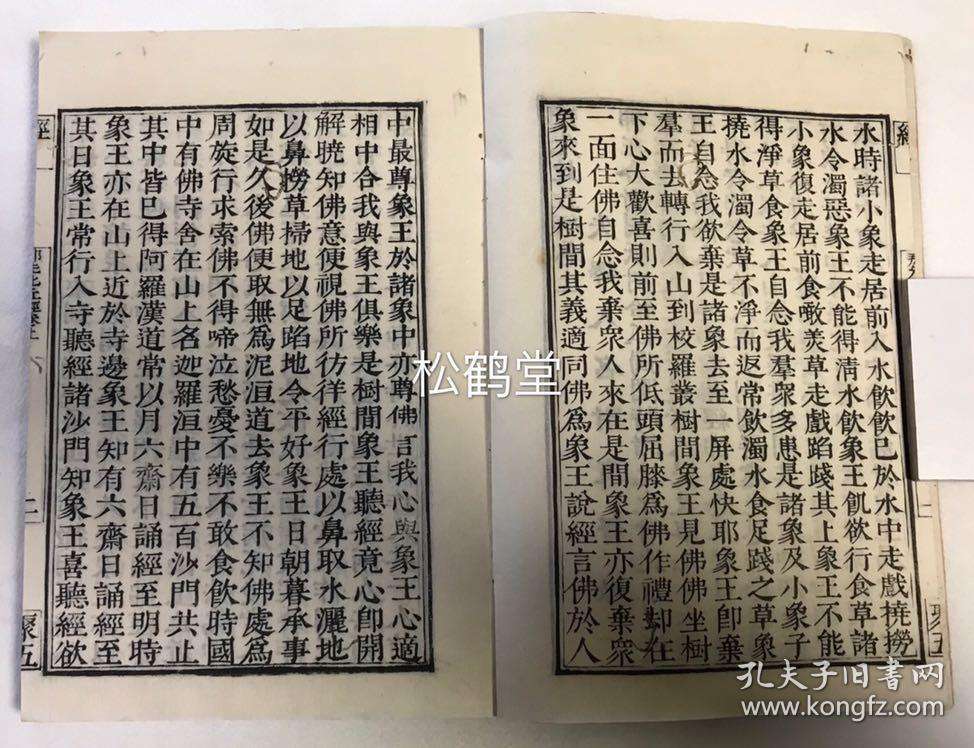 水時諸小象走居前入水飲飲已於水中走戲撓撈
水令濁惡象王不能得清水飲象王飢欲行食草諸
小象復走居前食噉美草走戲蹈踐其上象王不能
得淨草食象王自念我羣衆多患是諸象及小象子
撓水令濁令草不淨而返常飲濁水食足踐之草象
王自念我欲棄是諸象去至一屏處快耶象王卽棄
羣而去轉行入山到校羅叢樹間象王見佛佛坐樹
下心大歡喜則前至佛所低頭屈膝爲佛作禮却在
一面住佛自念我棄衆人來在是間象王亦復棄衆
象來到是樹間其義適同佛爲象王說經言佛於人
中最尊象王於諸象中亦尊佛言我心與象王心適
相中合我與象王俱樂是樹間象王聽經竟心卽開
解曉知佛意便視佛所彷徉經行處以鼻取水灑地
以鼻撈草掃地以足蹈地令平好象王日朝暮承事
如是久後佛便取無爲泥洹道去象王不知佛處爲
周旋行求索佛不得啼泣愁憂不樂不敢食飲時國
中有佛寺舍在山上名迦羅洹中有五百沙門共止
其中皆已得阿羅漢道常以月六齋日誦經至明時
象王亦在山上近於寺邊象王知有六齋日誦經至
其日象王常行入寺聽經諸沙門知象王喜聽經欲
經
二
聚五
松鹤堂
孔夫子旧书网
www.kongfz.com